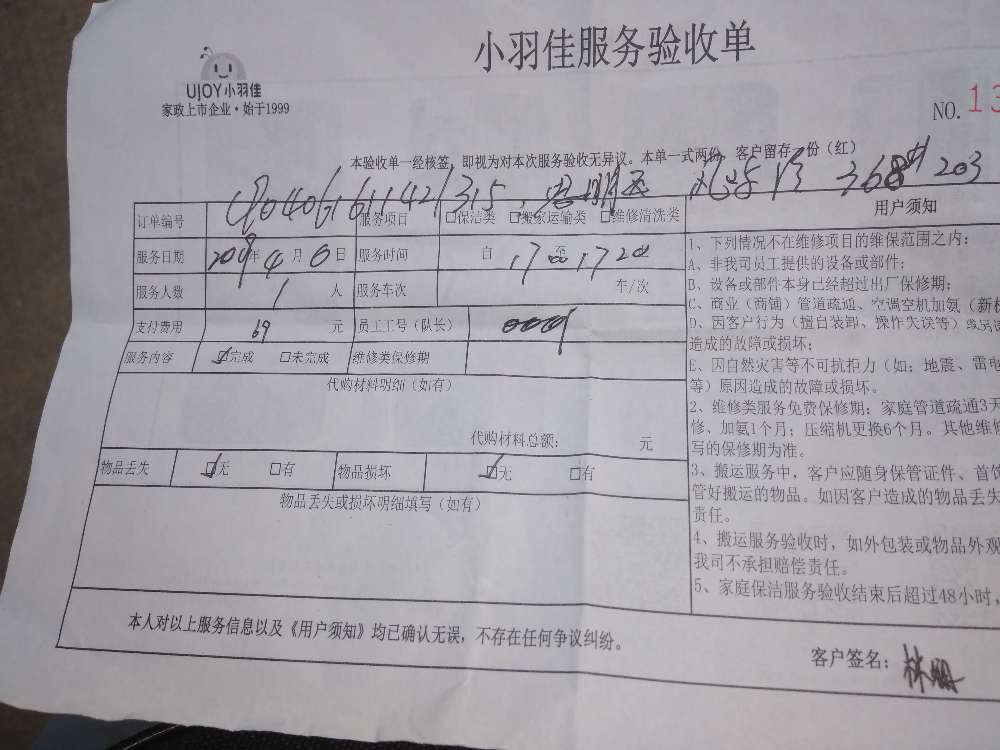 小羽佳服务验收单
UJOY小羽佳
家政上市企业·始于1999
NO. 13
本验收单一经核签，即视为对本次服务验收无异议。本单一式两份，客户留存一份（红）
368# 203
订单编号
服务项目 □保洁类 □搬家运输类 □维修清洗类
服务日期 2019年4月6日 服务时间 自 17 至 1720
服务人数 1 人 服务车次 车/次
支付费用 69 元 员工工号（队长） 0009
服务内容 ☑完成 □未完成 维修类保修期
代购材料明细（如有）
代购材料总额： 元
物品丢失 ☑无 □有 物品损坏 ☑无 □有
物品丢失或损坏明细填写（如有）
本人对以上服务信息以及《用户须知》均已确认无误，不存在任何争议纠纷。
客户签名：
用户须知
1、下列情况不在维修项目的维保范围之内：
A、非我司员工提供的设备或部件；
B、设备或部件本身已经超过出厂保修期；
C、商业（商铺）管道疏通、空调空机加氨（新机
D、因客户行为（擅自装卸、操作失误等）或
造成的故障或损坏；
E、因自然灾害等不可抗拒力（如：地震、雷电
等）原因造成的故障或损坏。
2、维修类服务免费保修期：家庭管道疏通3天
修、加氨1个月；压缩机更换6个月。其他维修
写的保修期为准。
3、搬运服务中，客户应随身保管证件、首饰
管好搬运的物品。如因客户造成的物品丢失
责任。
4、搬运服务验收时，如外包装或物品外观
我司不承担赔偿责任。
5、家庭保洁服务验收结束后超过48小时，